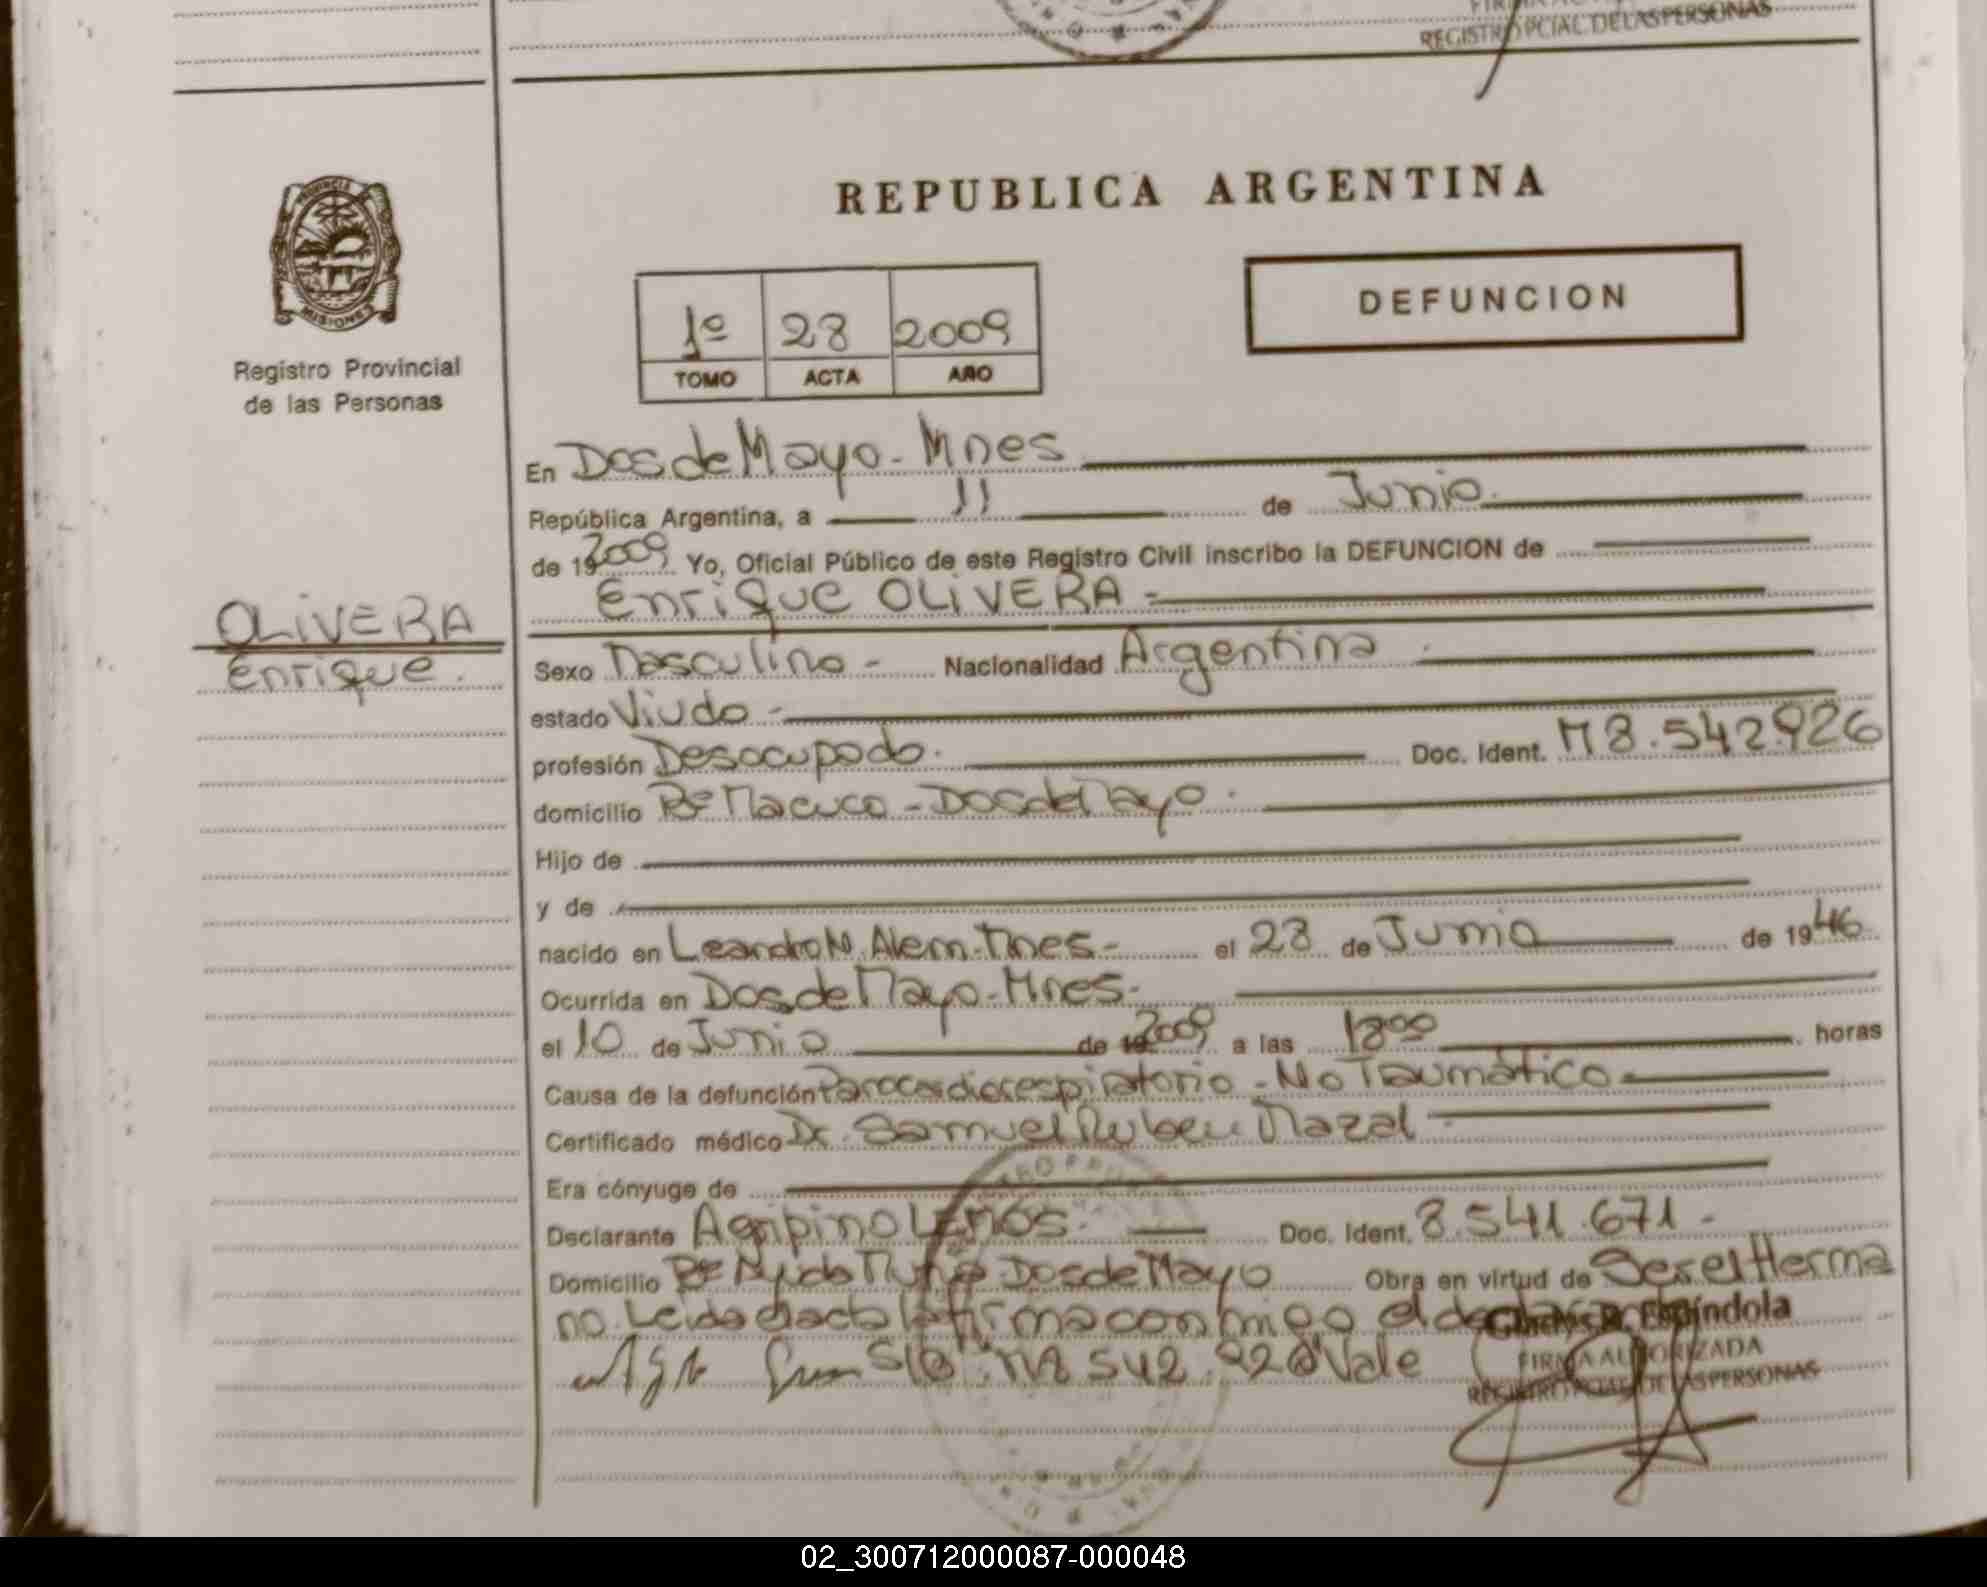 REGISTRO PCIAL DE LAS PERSONAS
PROVINCIA
MISIONES
Registro Provincial
de las Personas
REPUBLICA ARGENTINA
DEFUNCION
1º 28 2009
TOMO ACTA AÑO
En Dos de Mayo - Mnes
República Argentina, a 11 de Junio
de 192009 Yo, Oficial Público de este Registro Civil inscribo la DEFUNCION de
Enrique OLIVERA -
OLIVERA
Enrique.
Sexo Masculino - Nacionalidad Argentina
estado Viudo -
profesión Desocupado. Doc. Ident. M8.542.926
domicilio Bº Macuco - Dos de Mayo.
Hijo de
y de
nacido en Leandro N. Alem - Mnes - el 28 de Junio de 1946
Ocurrida en Dos de Mayo - Mnes -
el 10 de Junio de 192009 a las 18⁰⁰ horas
Causa de la defunción Parocardiorespiratorio - No Traumático -
Certificado médico Dr. Samuel Ruben Mazal -
Era cónyuge de
Declarante Agripino Lemos. Doc. Ident. 8.541.671 -
Domicilio Bº Dos de Mayo Obra en virtud de Ser el Herma
no. Leida el acta la firma conmigo el declarante
542.926 Vale
Espíndola
FIRMA AUTORIZADA
REGISTRO PCIAL DE LAS PERSONAS
02_300712000087-000048